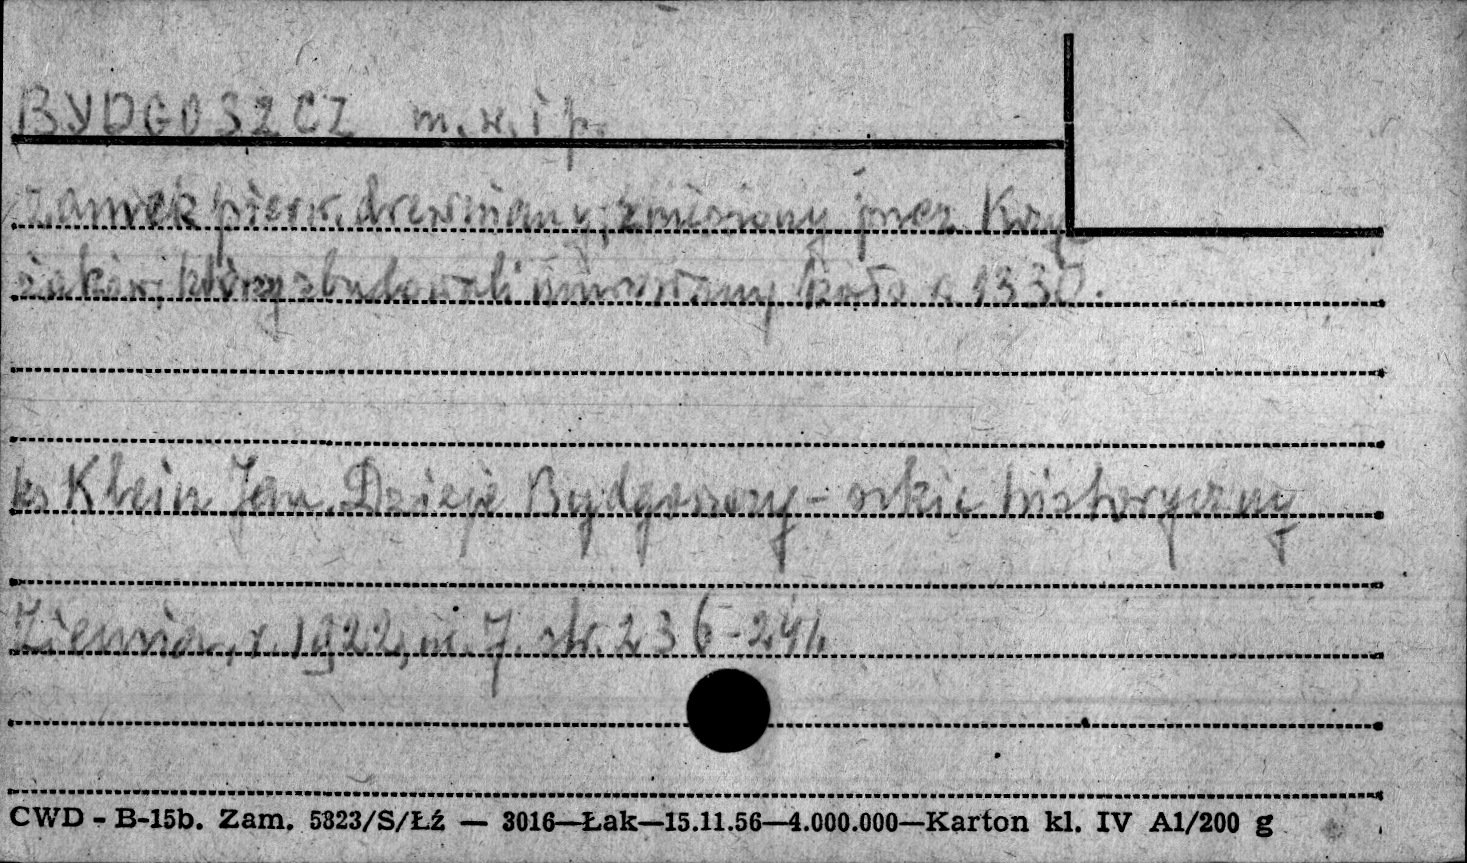 BYDGOSZCZ m. w. i p.
zamek pierw. drewniany, zniesiony przez Krzy-
żaków, którzy zbudowali murowany koło r. 1330.
ks Klein Jan. Dzieje Bydgoszczy - szkic historyczny
Ziemia, r. 1922, nr. 7. str. 236-241.
CWD - B-15b. Zam. 5323/S/Łź — 3016—Łak—15.11.56—4.000.000—Karton kl. IV A1/200 g